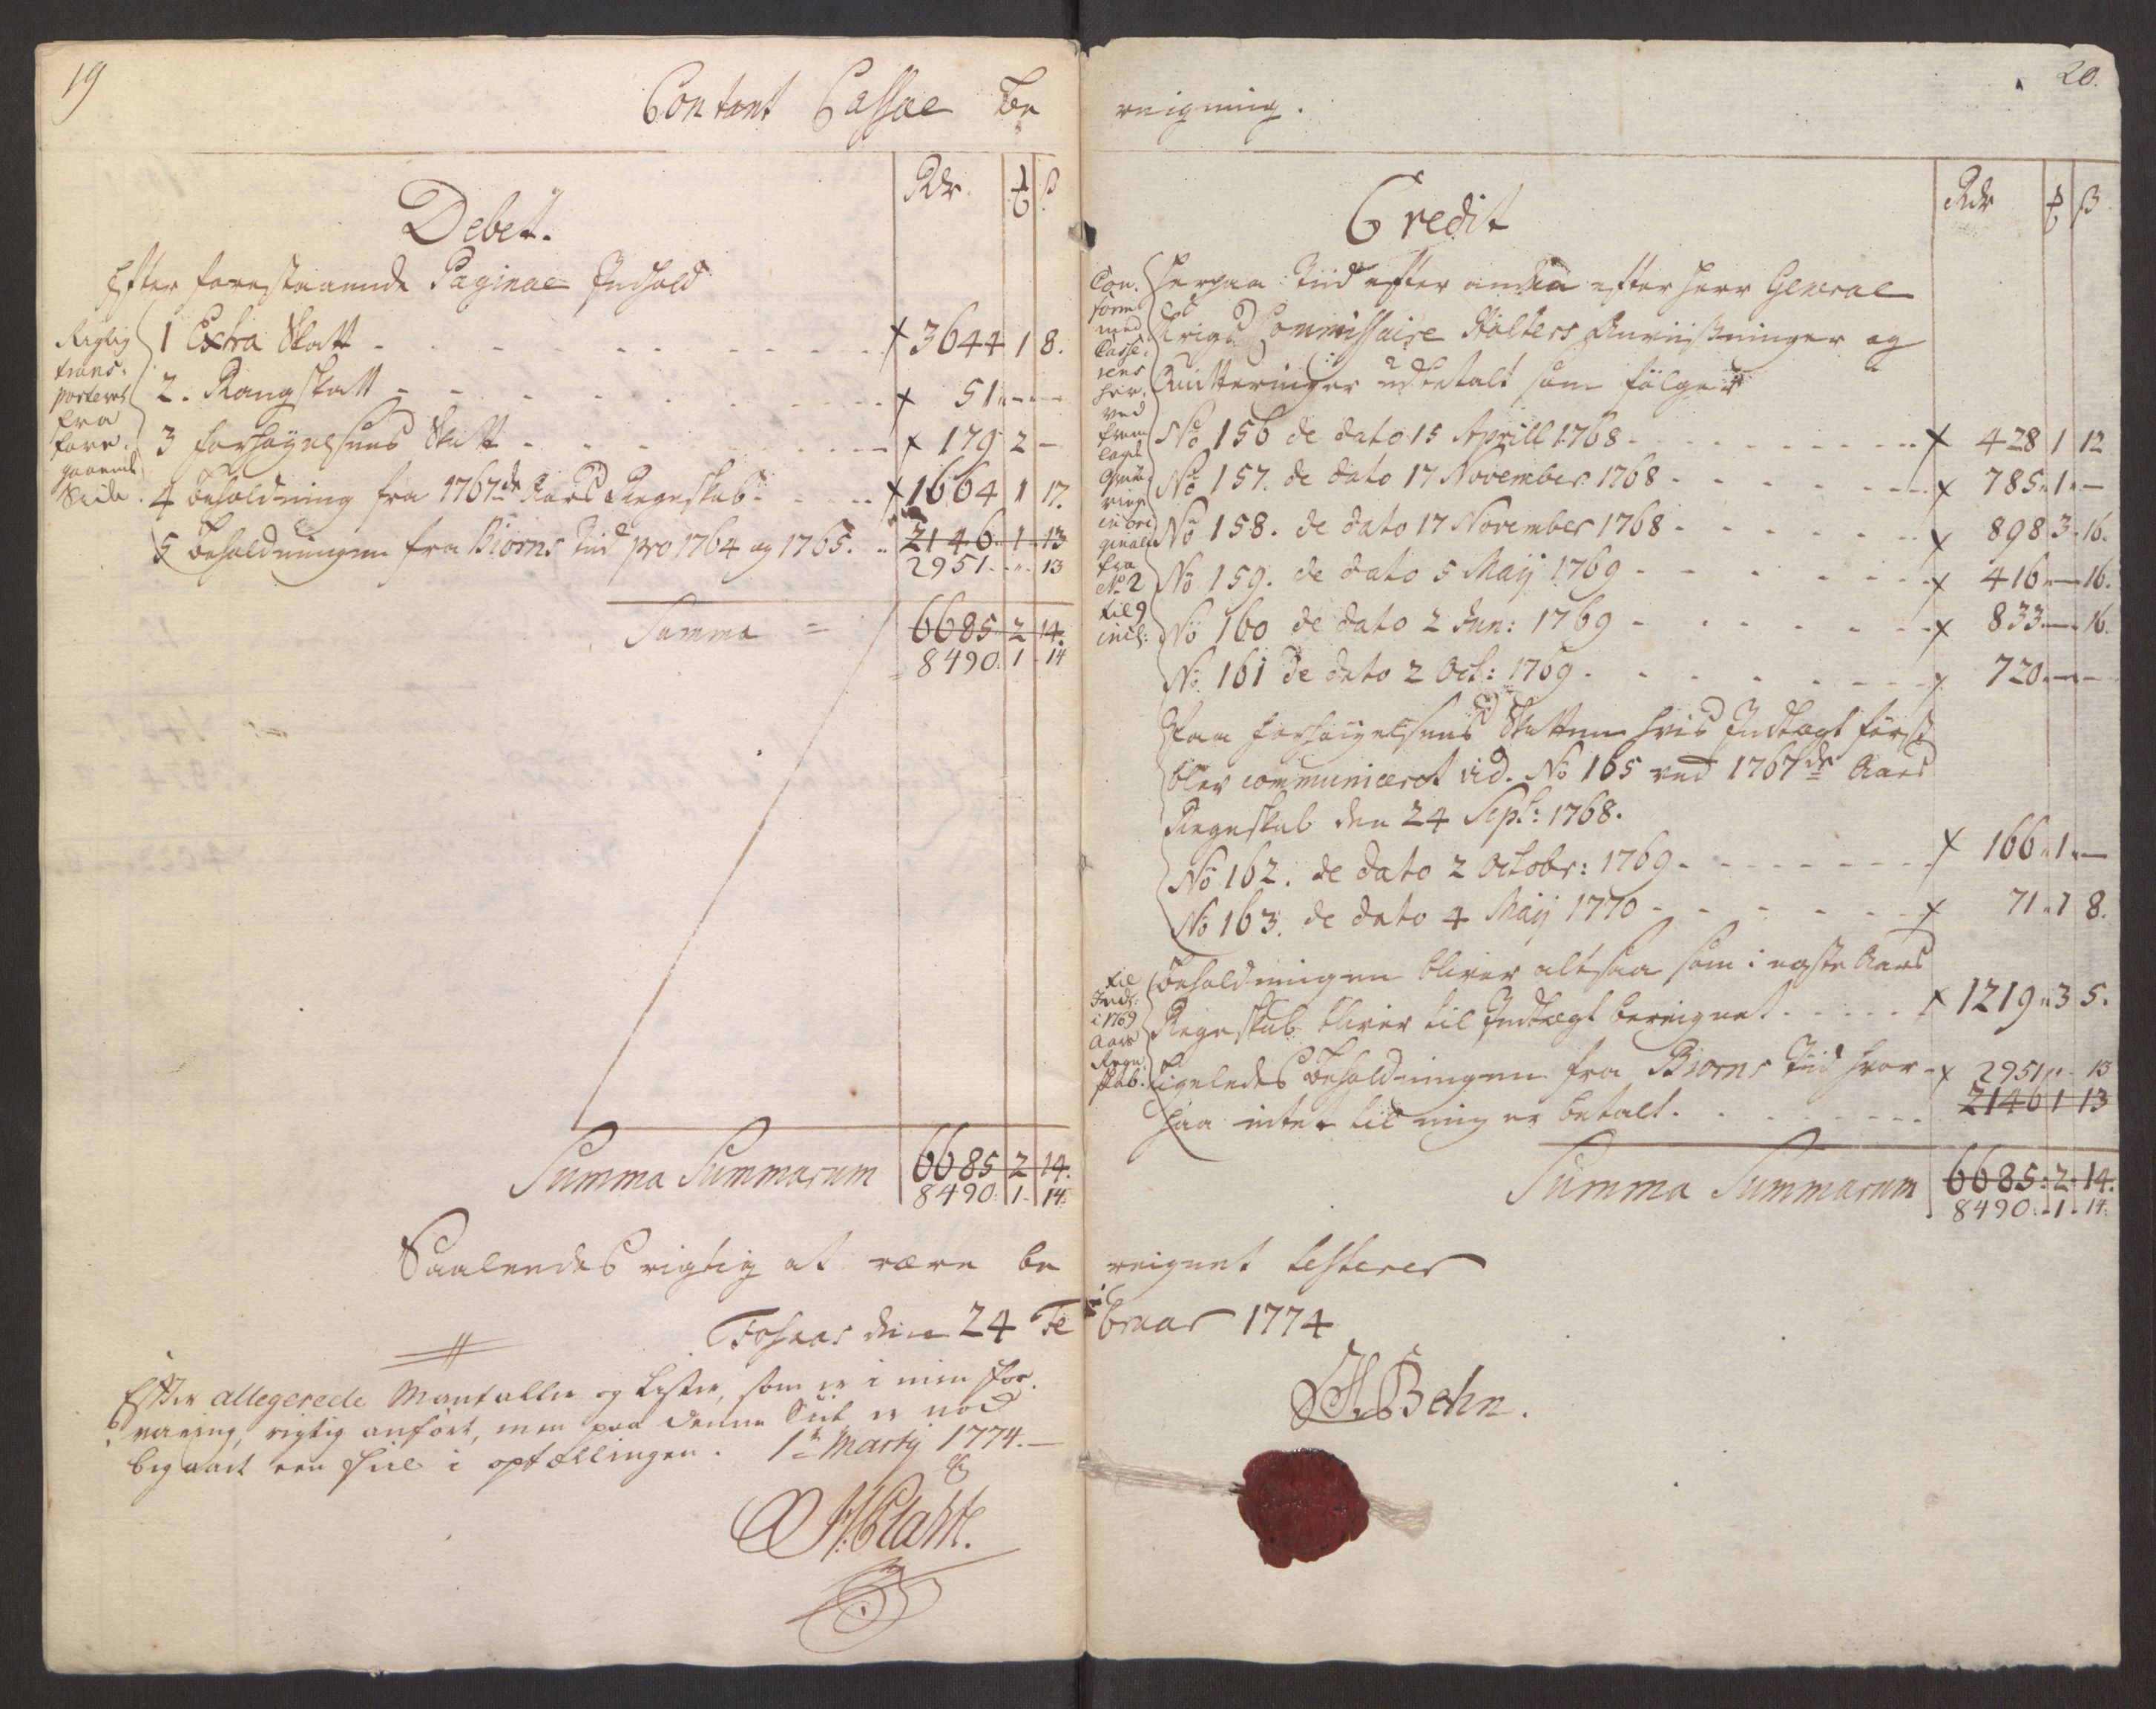 19
Contant Cassae be
Debet.
Rdr ₰ β
Efter forestaaende Paginae Indhold
Rigtig
trans-
porteret
fra
fore-
gaaende
Side.
1 Extra Skatt - - - x 3644 1 8.
2. Rangskatt - - - x 51 " - -
3 Forhøyelsens Skatt - - - x 179 2 -
4 Beholdning fra 1767de Aars Regnskab - - - x 1664 1 17.
5 Beholdningen fra Biorns Tid pro 1764 og 1765. - 2146 - 1 - 13
2951 - " - 13
Summa = 6685 2 14.
8490. 1 - 14
Summa Summarum 6685 2 14.
8490. 1 - 14.
Saaledes rigtig at være be
Foshaar den 24 Fe
Efter allegerede Mantaller og Lister, som er i min for-
varing, rigtig anført, men paa denne Side er ved
begaaet een Feil i optællingen. 1te Martij 1774. -
H. Plahte.
20.
reigning.
Credit
Rdr ₰ β
Con-
form
med
Casse-
rens
her-
ved
frem-
lagde
Qvitte-
ringer
in ori-
ginali
fra
No 2
til 9
incl:
Herpaa Tiid efter anden efter Herr General
Krigs Commissaire Holters Anviisninger og
Quitteringer udbetalt som følger
No 156 de dato 15 Aprill 1768 - - - x 428 1 12
No 157. de dato 17 November 1768 - - - x 785 " 1 " -
No 158. de dato 17 November 1768 - - - x 898 3 - 16.
No 159. de dato 5 Maij 1769 - - - x 416 " - 16.
No 160 de dato 2 Jun: 1769 - - - x 833 - - 16.
No 161 de dato 2 Oct: 1769 - - - x 720 - - -
Paa Forhøyelsens Skatten hvis Indtægt først
blev communiceret vid. No 165 ved 1767de Aars
Regnskab den 24 Sept: 1768.
No 162. de dato 2 Octobr: 1769 - - - x 166 " 1 " -
No 163. de dato 4 Maij 1770 - - - x 71 " 1 8.
til
Indt:
i 1769
Aars
Regn-
skab.
Beholdningen bliver altsaa som i neste Aars
Regnskab bliver til Indtægt bereignet - - - x 1219 " 3 5.
Ligeledes Beholdningen fra Biorns Tiid hvor - x 2951 " - 13
paa intet til mig er betalt. - - - 2146 1 13
Summa Summarum 6685 : 2 - 14.
8490. - 1 - 14.
reignet testerer
bruar 1774
Behn.